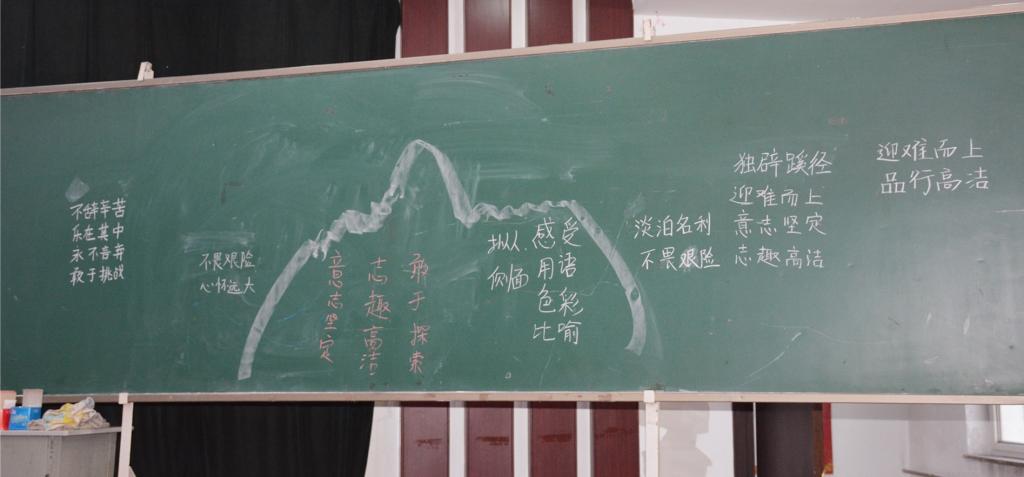 不辞辛苦
乐在其中
永不言弃
敢于挑战
不畏艰险
心怀远大
意志坚定
志趣高洁
敢于探索
拟人
侧面
感受
用语
色彩
比喻
淡泊名利
不畏艰险
独辟蹊径
迎难而上
意志坚定
志趣高洁
迎难而上
品行高洁